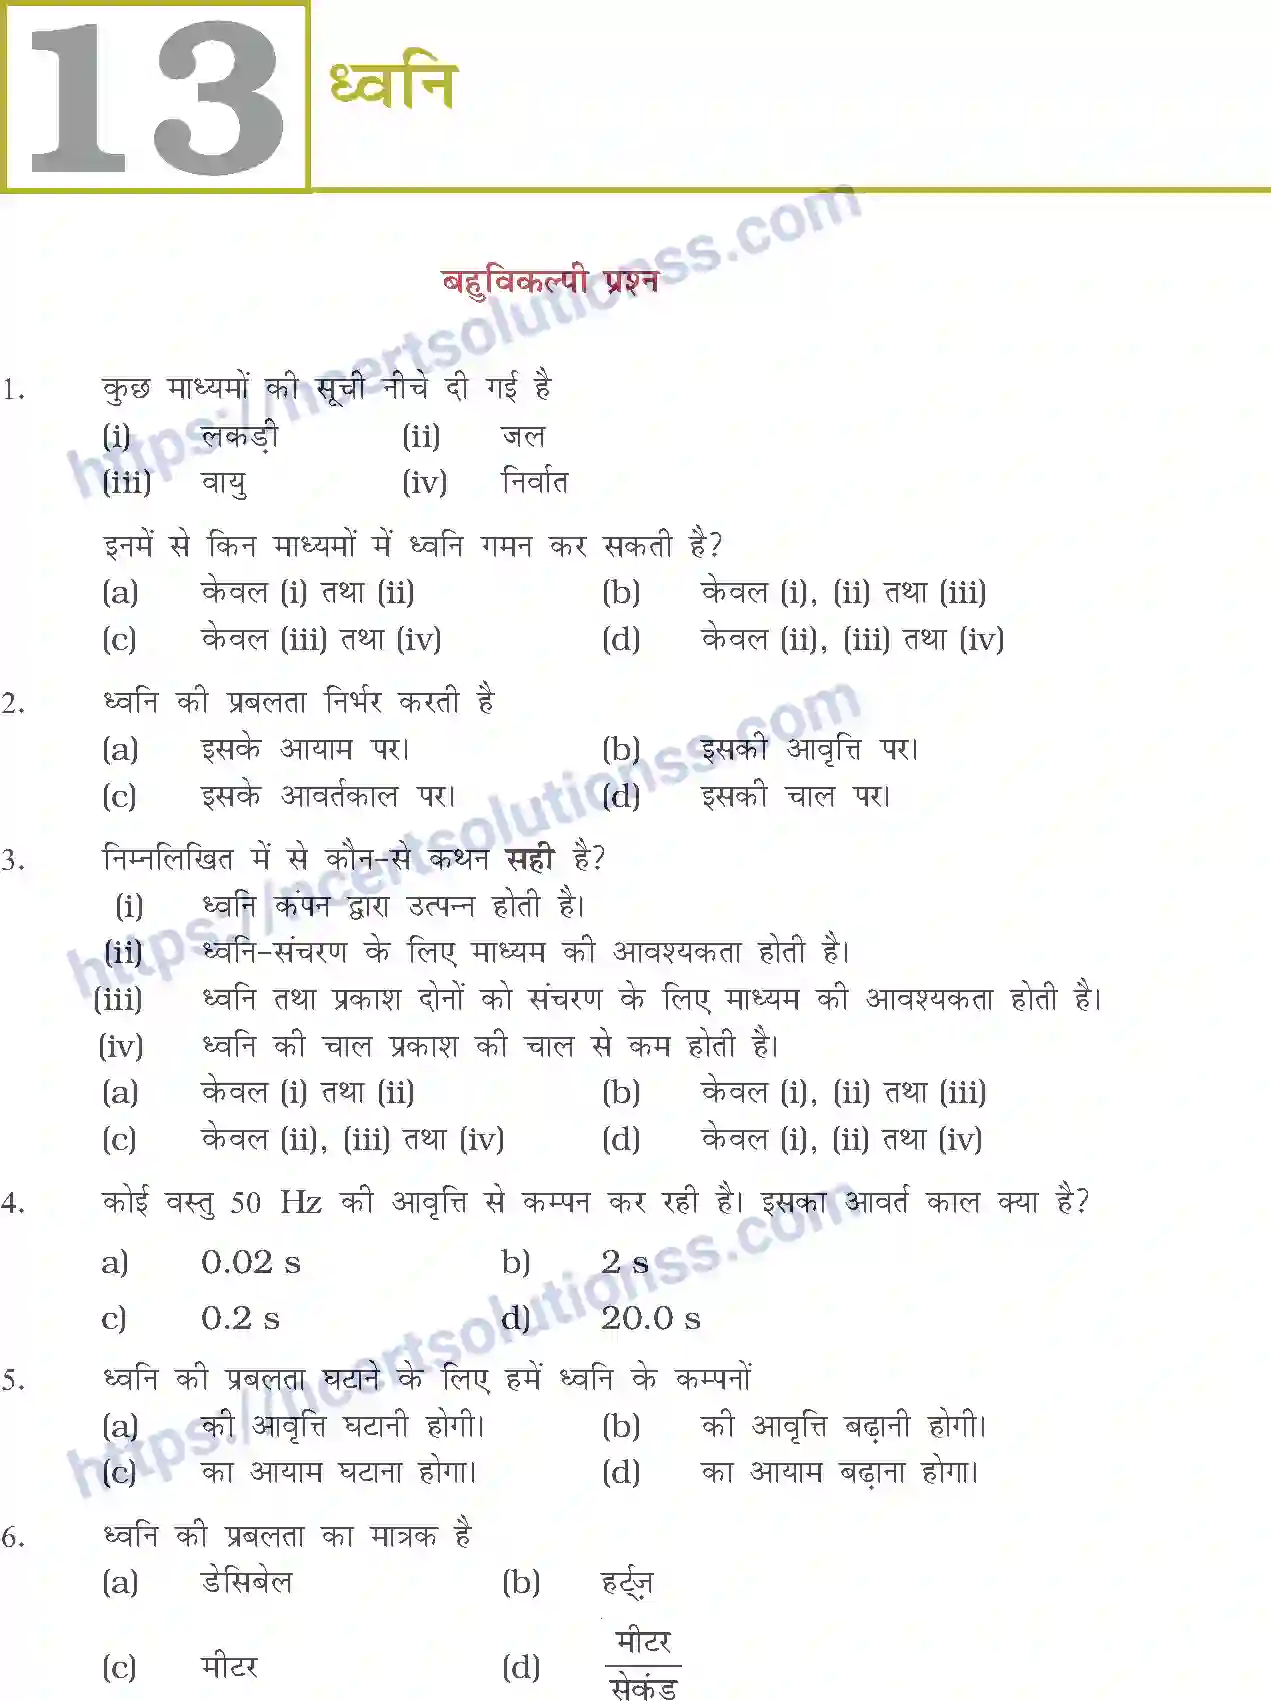 13
ध्वनि
बहुविकल्पी प्रश्न
1. कुछ माध्यमों की सूची नीचे दी गई है
(i) लकड़ी (ii) जल
(iii) वायु (iv) निर्वात
इनमें से किन माध्यमों में ध्वनि गमन कर सकती है?
(a) केवल (i) तथा (ii) (b) केवल (i), (ii) तथा (iii)
(c) केवल (iii) तथा (iv) (d) केवल (ii), (iii) तथा (iv)
2. ध्वनि की प्रबलता निर्भर करती है
(a) इसके आयाम पर। (b) इसकी आवृत्ति पर।
(c) इसके आवर्तकाल पर। (d) इसकी चाल पर।
3. निम्नलिखित में से कौन-से कथन सही है?
(i) ध्वनि कंपन द्वारा उत्पन्न होती है।
(ii) ध्वनि-संचरण के लिए माध्यम की आवश्यकता होती है।
(iii) ध्वनि तथा प्रकाश दोनों को संचरण के लिए माध्यम की आवश्यकता होती है।
(iv) ध्वनि की चाल प्रकाश की चाल से कम होती है।
(a) केवल (i) तथा (ii) (b) केवल (i), (ii) तथा (iii)
(c) केवल (ii), (iii) तथा (iv) (d) केवल (i), (ii) तथा (iv)
4. कोई वस्तु 50 Hz की आवृत्ति से कम्पन कर रही है। इसका आवर्त काल क्या है?
a) 0.02 s b) 2 s
c) 0.2 s d) 20.0 s
5. ध्वनि की प्रबलता घटाने के लिए हमें ध्वनि के कम्पनों
(a) की आवृत्ति घटानी होगी। (b) की आवृत्ति बढ़ानी होगी।
(c) का आयाम घटाना होगा। (d) का आयाम बढ़ाना होगा।
6. ध्वनि की प्रबलता का मात्रक है
(a) डेसिबेल (b) हर्ट्ज़
(c) मीटर (d) मीटर
सेकंड
https://ncertsolutionss.com
https://ncertsolutionss.com
https://ncertsolutionss.com